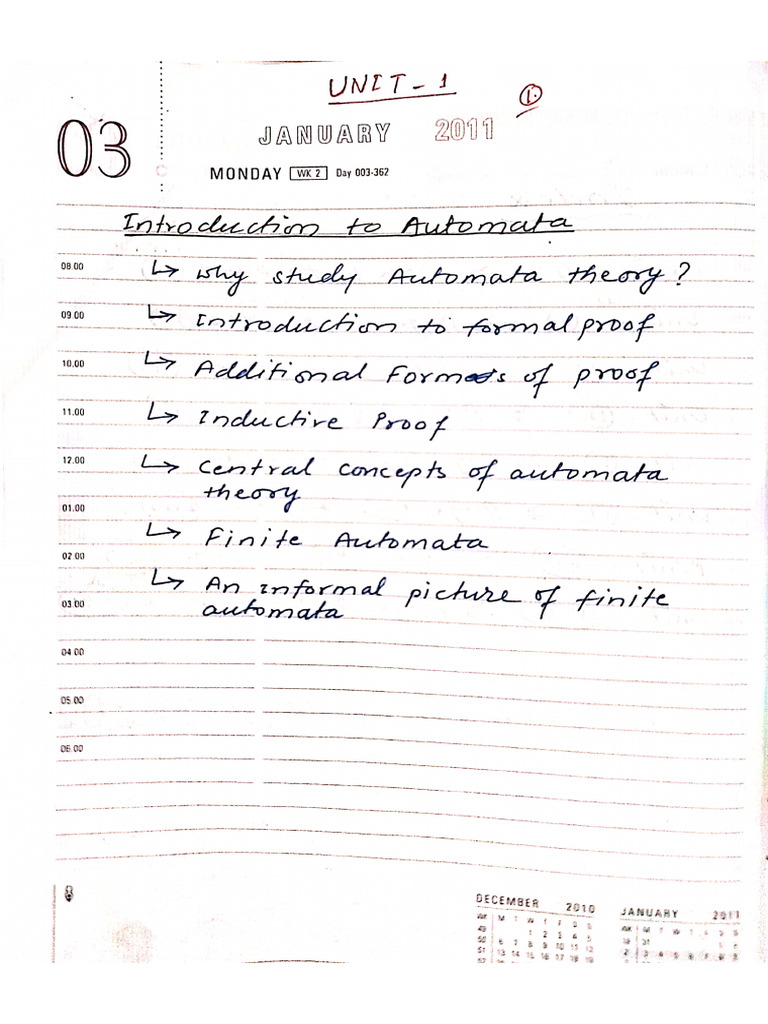 UNIT - 1
1.
03
JANUARY 2011
MONDAY WK 2 Day 003-362
Introduction to Automata
08.00 ↳ why study Automata theory?
09.00 ↳ Introduction to formal proof
10.00 ↳ Additional Forms of proof
11.00 ↳ Inductive Proof
12.00 ↳ Central concepts of automata
theory
01.00
↳ Finite Automata
02.00
↳ An informal picture of finite
03.00 automata
04.00
05.00
06.00
DECEMBER 2010
JANUARY 2011